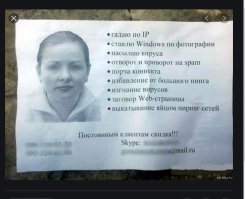 • гадаю по IP
• ставлю Windows по фотографии
• насылаю вируса
• отворот и приворот на spam
• порча коннекта
• избавление от большого пинга
• изгнание вирусов
• заговор Web-страницы
• выкатывание яйцом пиринг сетей
Постоянным клиентам скидка!!!
Skype:
@mail.ru